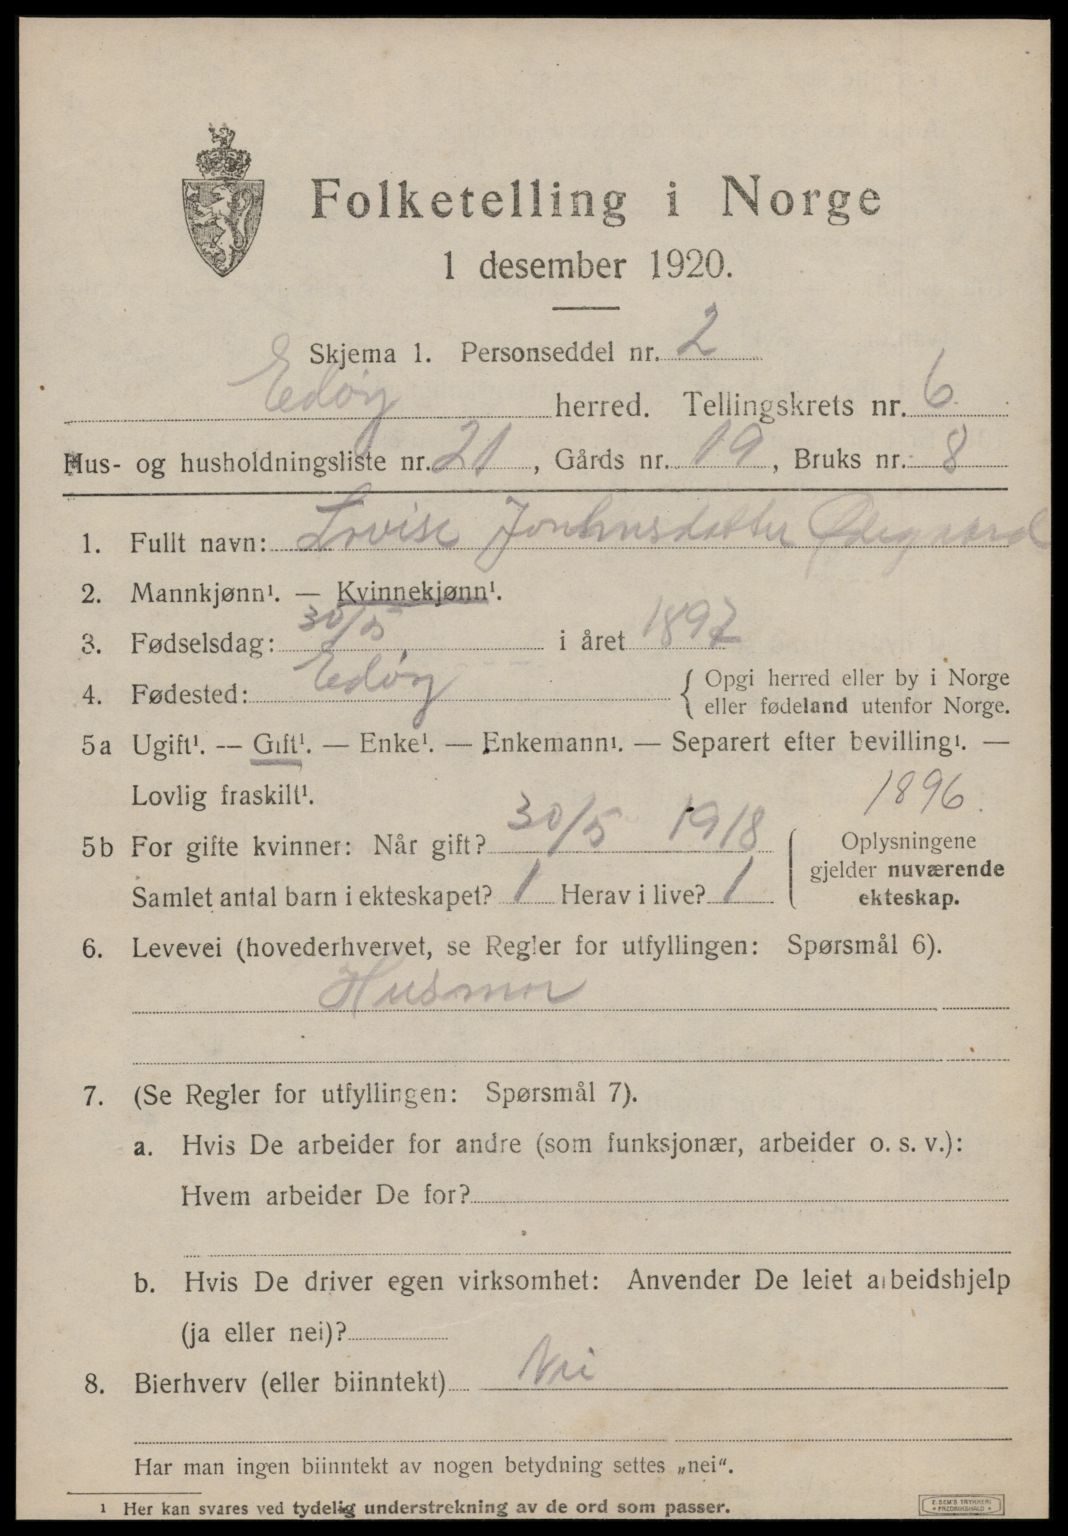 Folketelling i Norge
1 desember 1920.
Skjema 1. Personseddel nr. 2
Edøy herred. Tellingskrets nr. 6
Hus- og husholdningsliste nr. 21, Gårds nr. 19, Bruks nr. 8
1. Fullt navn: Lovise Ødegaard
2. Mannkjønn¹. — Kvinnekjønn¹.
3. Fødselsdag: 30/5 i året 1897
4. Fødested: Edøy { Opgi herred eller by i Norge
eller fødeland utenfor Norge.
5a Ugift¹. — Gift¹. — Enke¹. — Enkemann¹. — Separert efter bevilling¹. —
Lovlig fraskilt¹. 1896.
5b For gifte kvinner: Når gift? 30/5 1918 { Oplysningene
gjelder nuværende
Samlet antal barn i ekteskapet? 1 Herav i live? 1 ekteskap.
6. Levevei (hovederhvervet, se Regler for utfyllingen: Spørsmål 6).
Husmor
7. (Se Regler for utfyllingen: Spørsmål 7).
a. Hvis De arbeider for andre (som funksjonær, arbeider o. s. v.):
Hvem arbeider De for?
b. Hvis De driver egen virksomhet: Anvender De leiet arbeidshjelp
(ja eller nei)?
8. Bierhverv (eller biinntekt) Nei
Har man ingen biinntekt av nogen betydning settes „nei“.
¹ Her kan svares ved tydelig understrekning av de ord som passer.
E. SEM'S TRYKKERI
FREDRIKSHALD